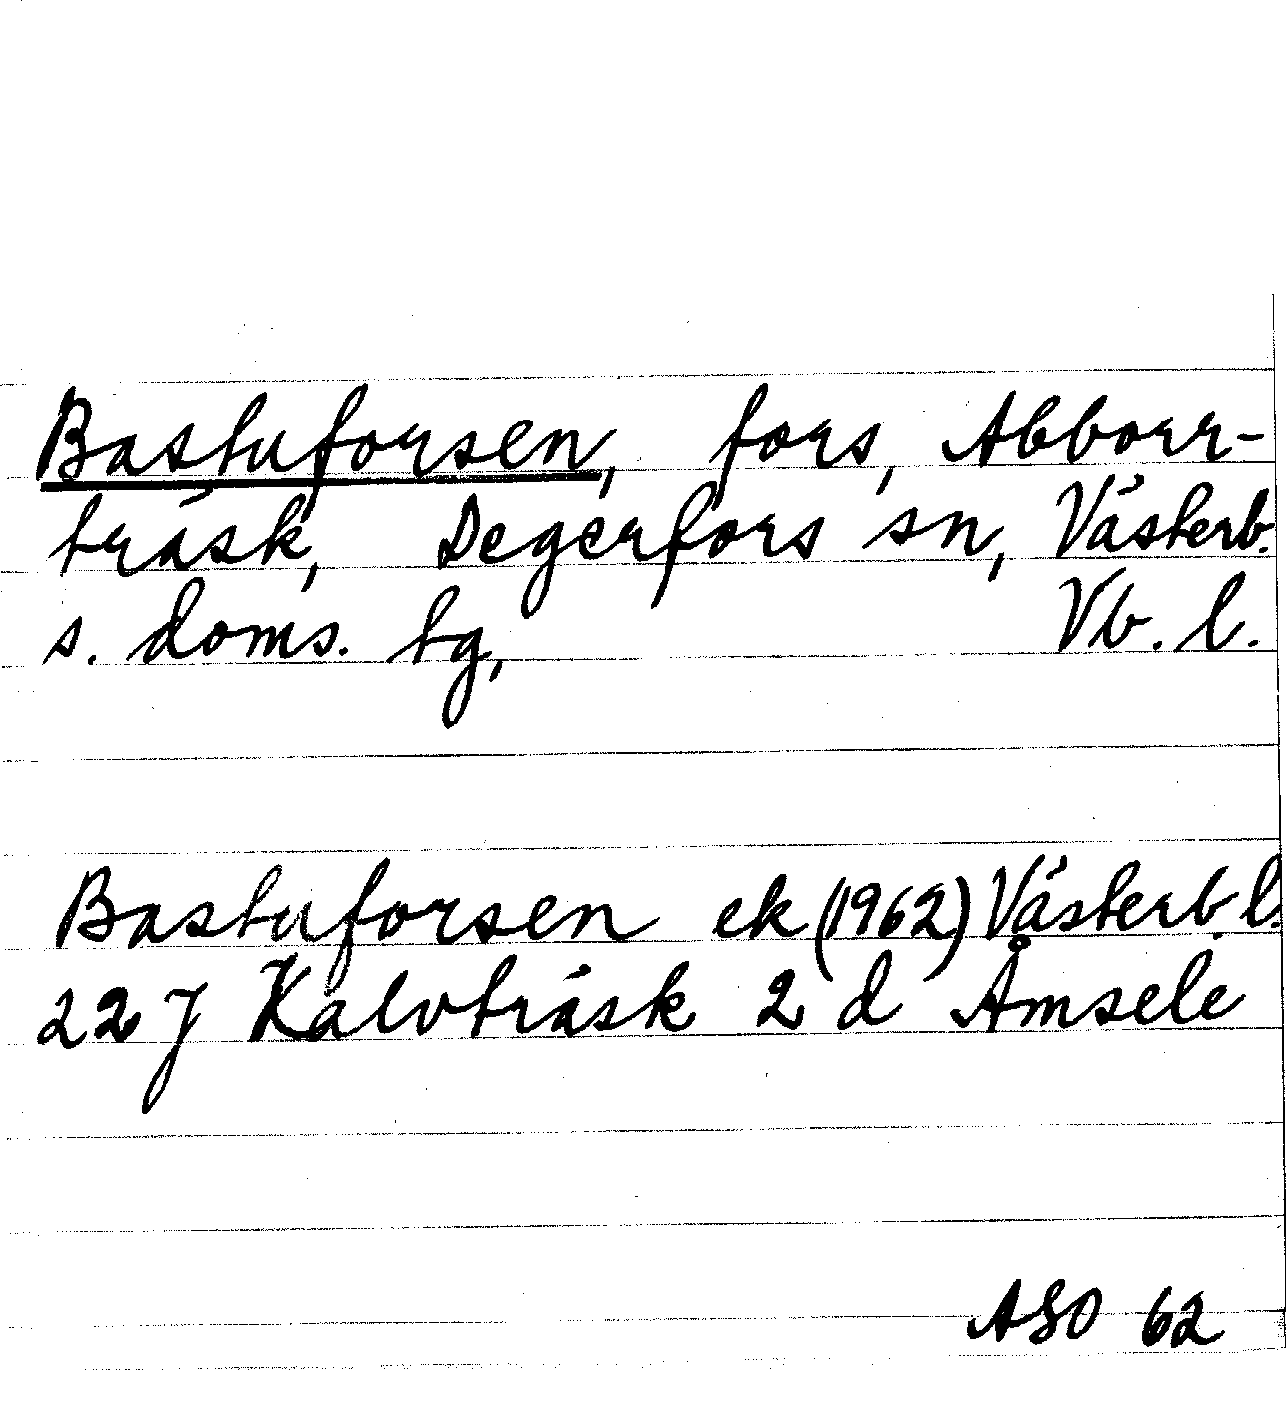 Bastuforsen, fors, Abborr-
träsk, Degerfors sn, Västerb.
s. doms. tg, Vb. l.
Bastuforsen ek (1962) Västerb. l.
22 J Kalvträsk 2 d Åmsele
ASO 62